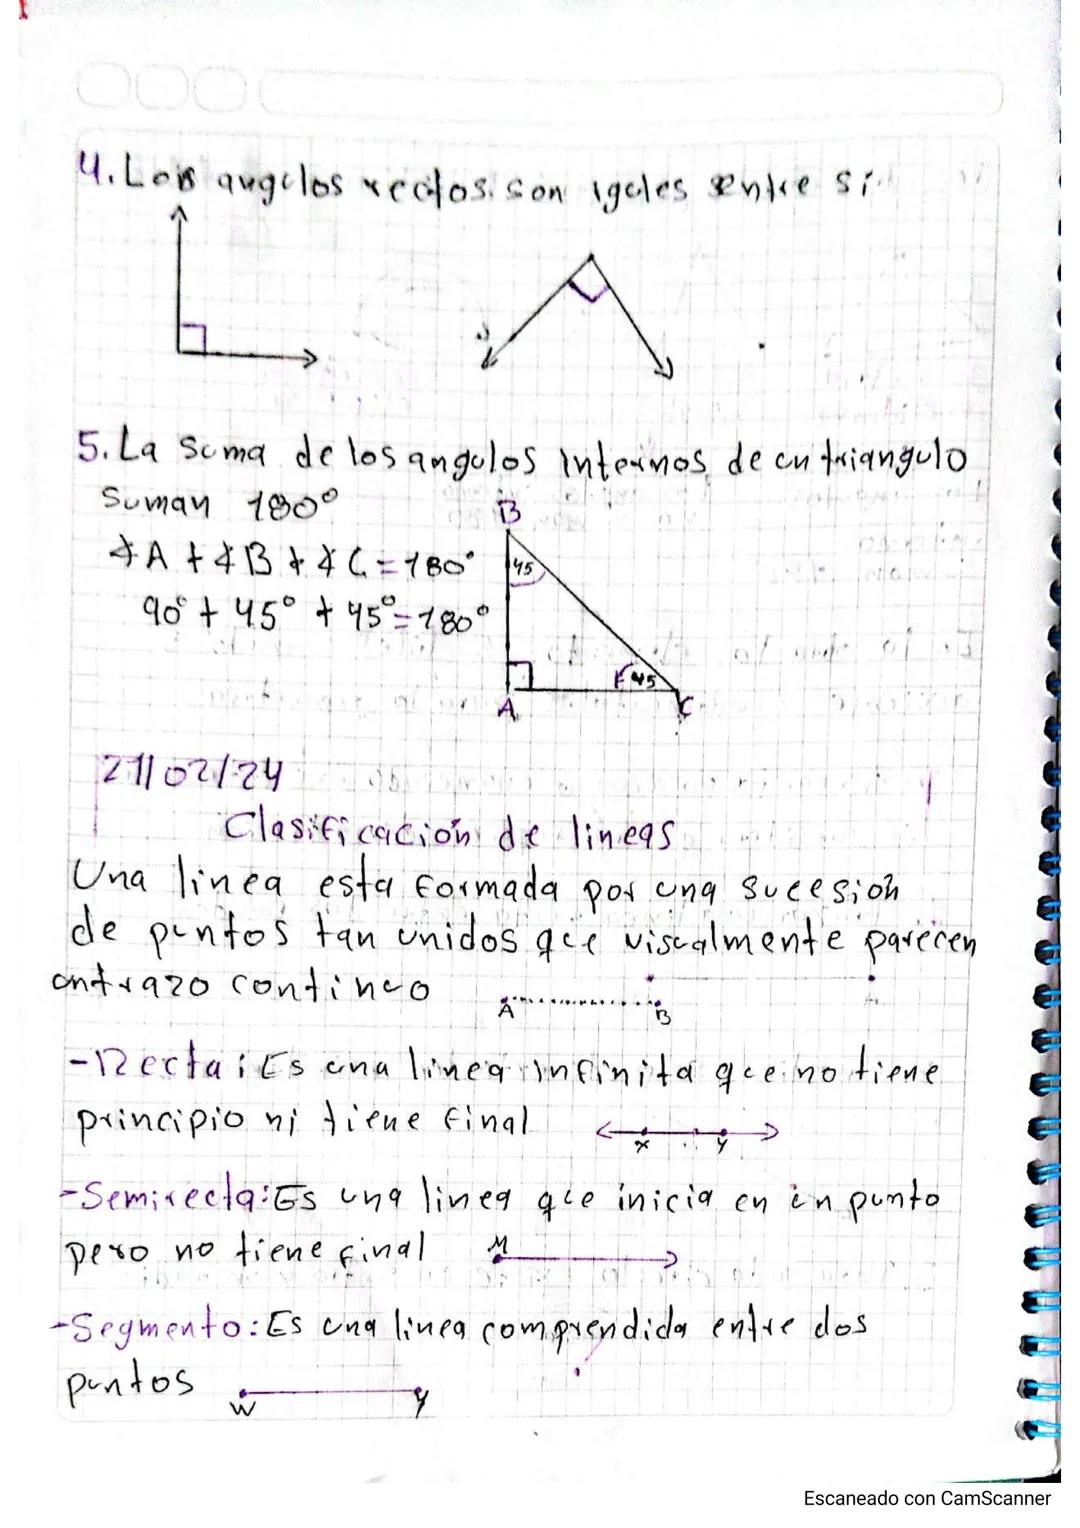 4. Los angulos rectos. son iguales entre sí.
5. La suma de los angulos internos de un triangulo
Suman 180°
B
∡A + ∡B + ∡C = 180°
45
90° + 45° + 45° = 180°
45
A
C
21/02/24
Clasificación de lineas
Una linea esta formada por una sucesión
de puntos tan unidos que visualmente parecen
untrazo continuo
A
B
-Recta: Es una linea infinita que no tiene
principio ni tiene final
x y
-Semirecta: Es una linea que inicia en un punto
pero no tiene final
M
-Segmento: Es una linea comprendida entre dos
puntos
W
y
Escaneado con CamScanner